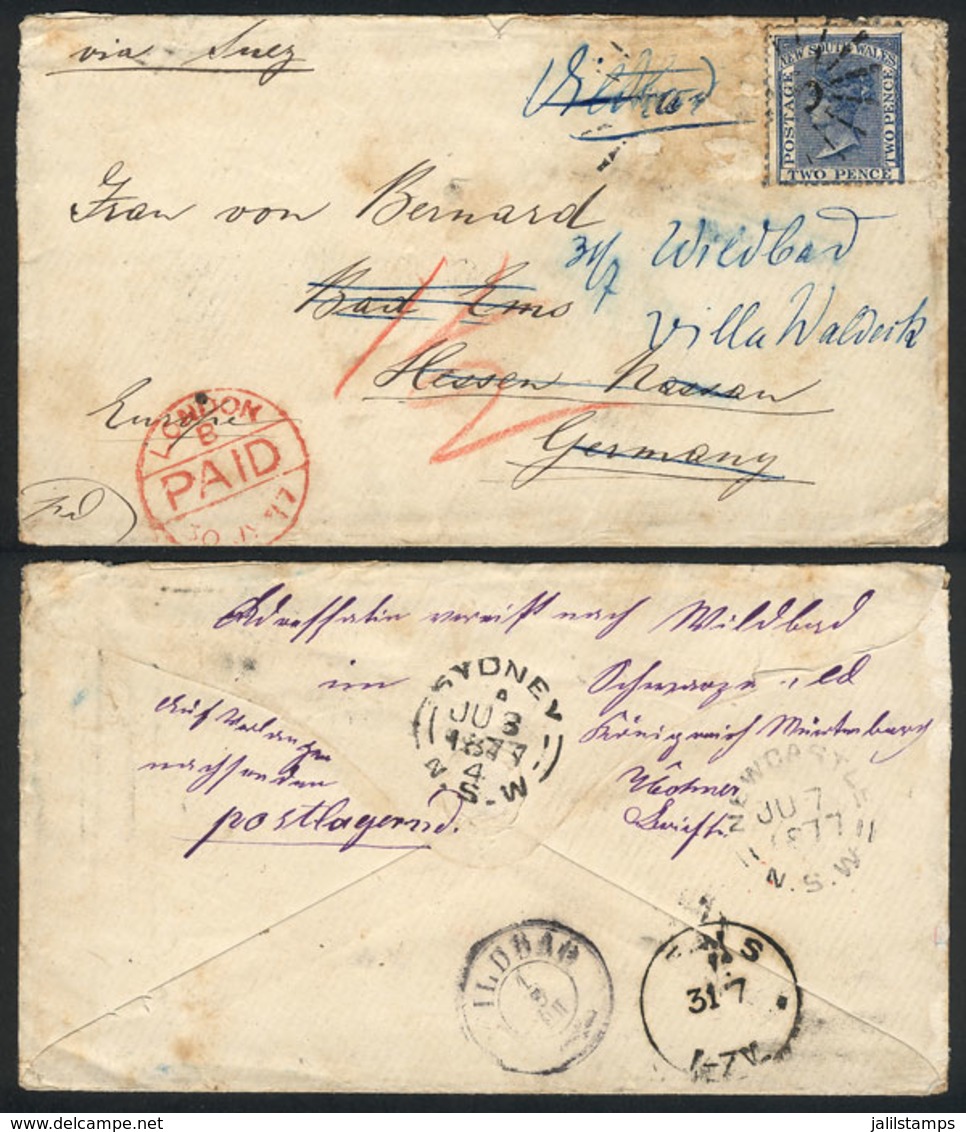 via Suez
NEW SOUTH WALES
POSTAGE
TWO PENCE
TWO PENCE
Wildbad
Frau von Bernard
31/7 Wildbad
Bad Ems
Villa Waldeck
Hessen Nassau
Europe
Germany
LONDON
B
PAID
30 JY 77
Adressatin verreist nach Wildbad
im
Schwarz
Auf Verlangen
Königreich Würtemberg
nachsenden
postlagernd.
SYDNEY
A
JU 8
1877
4
N.S.W
NEWCASTLE
JU 7
1877
N.S.W
WILDBAD
EMS
31 7
jalilstamps